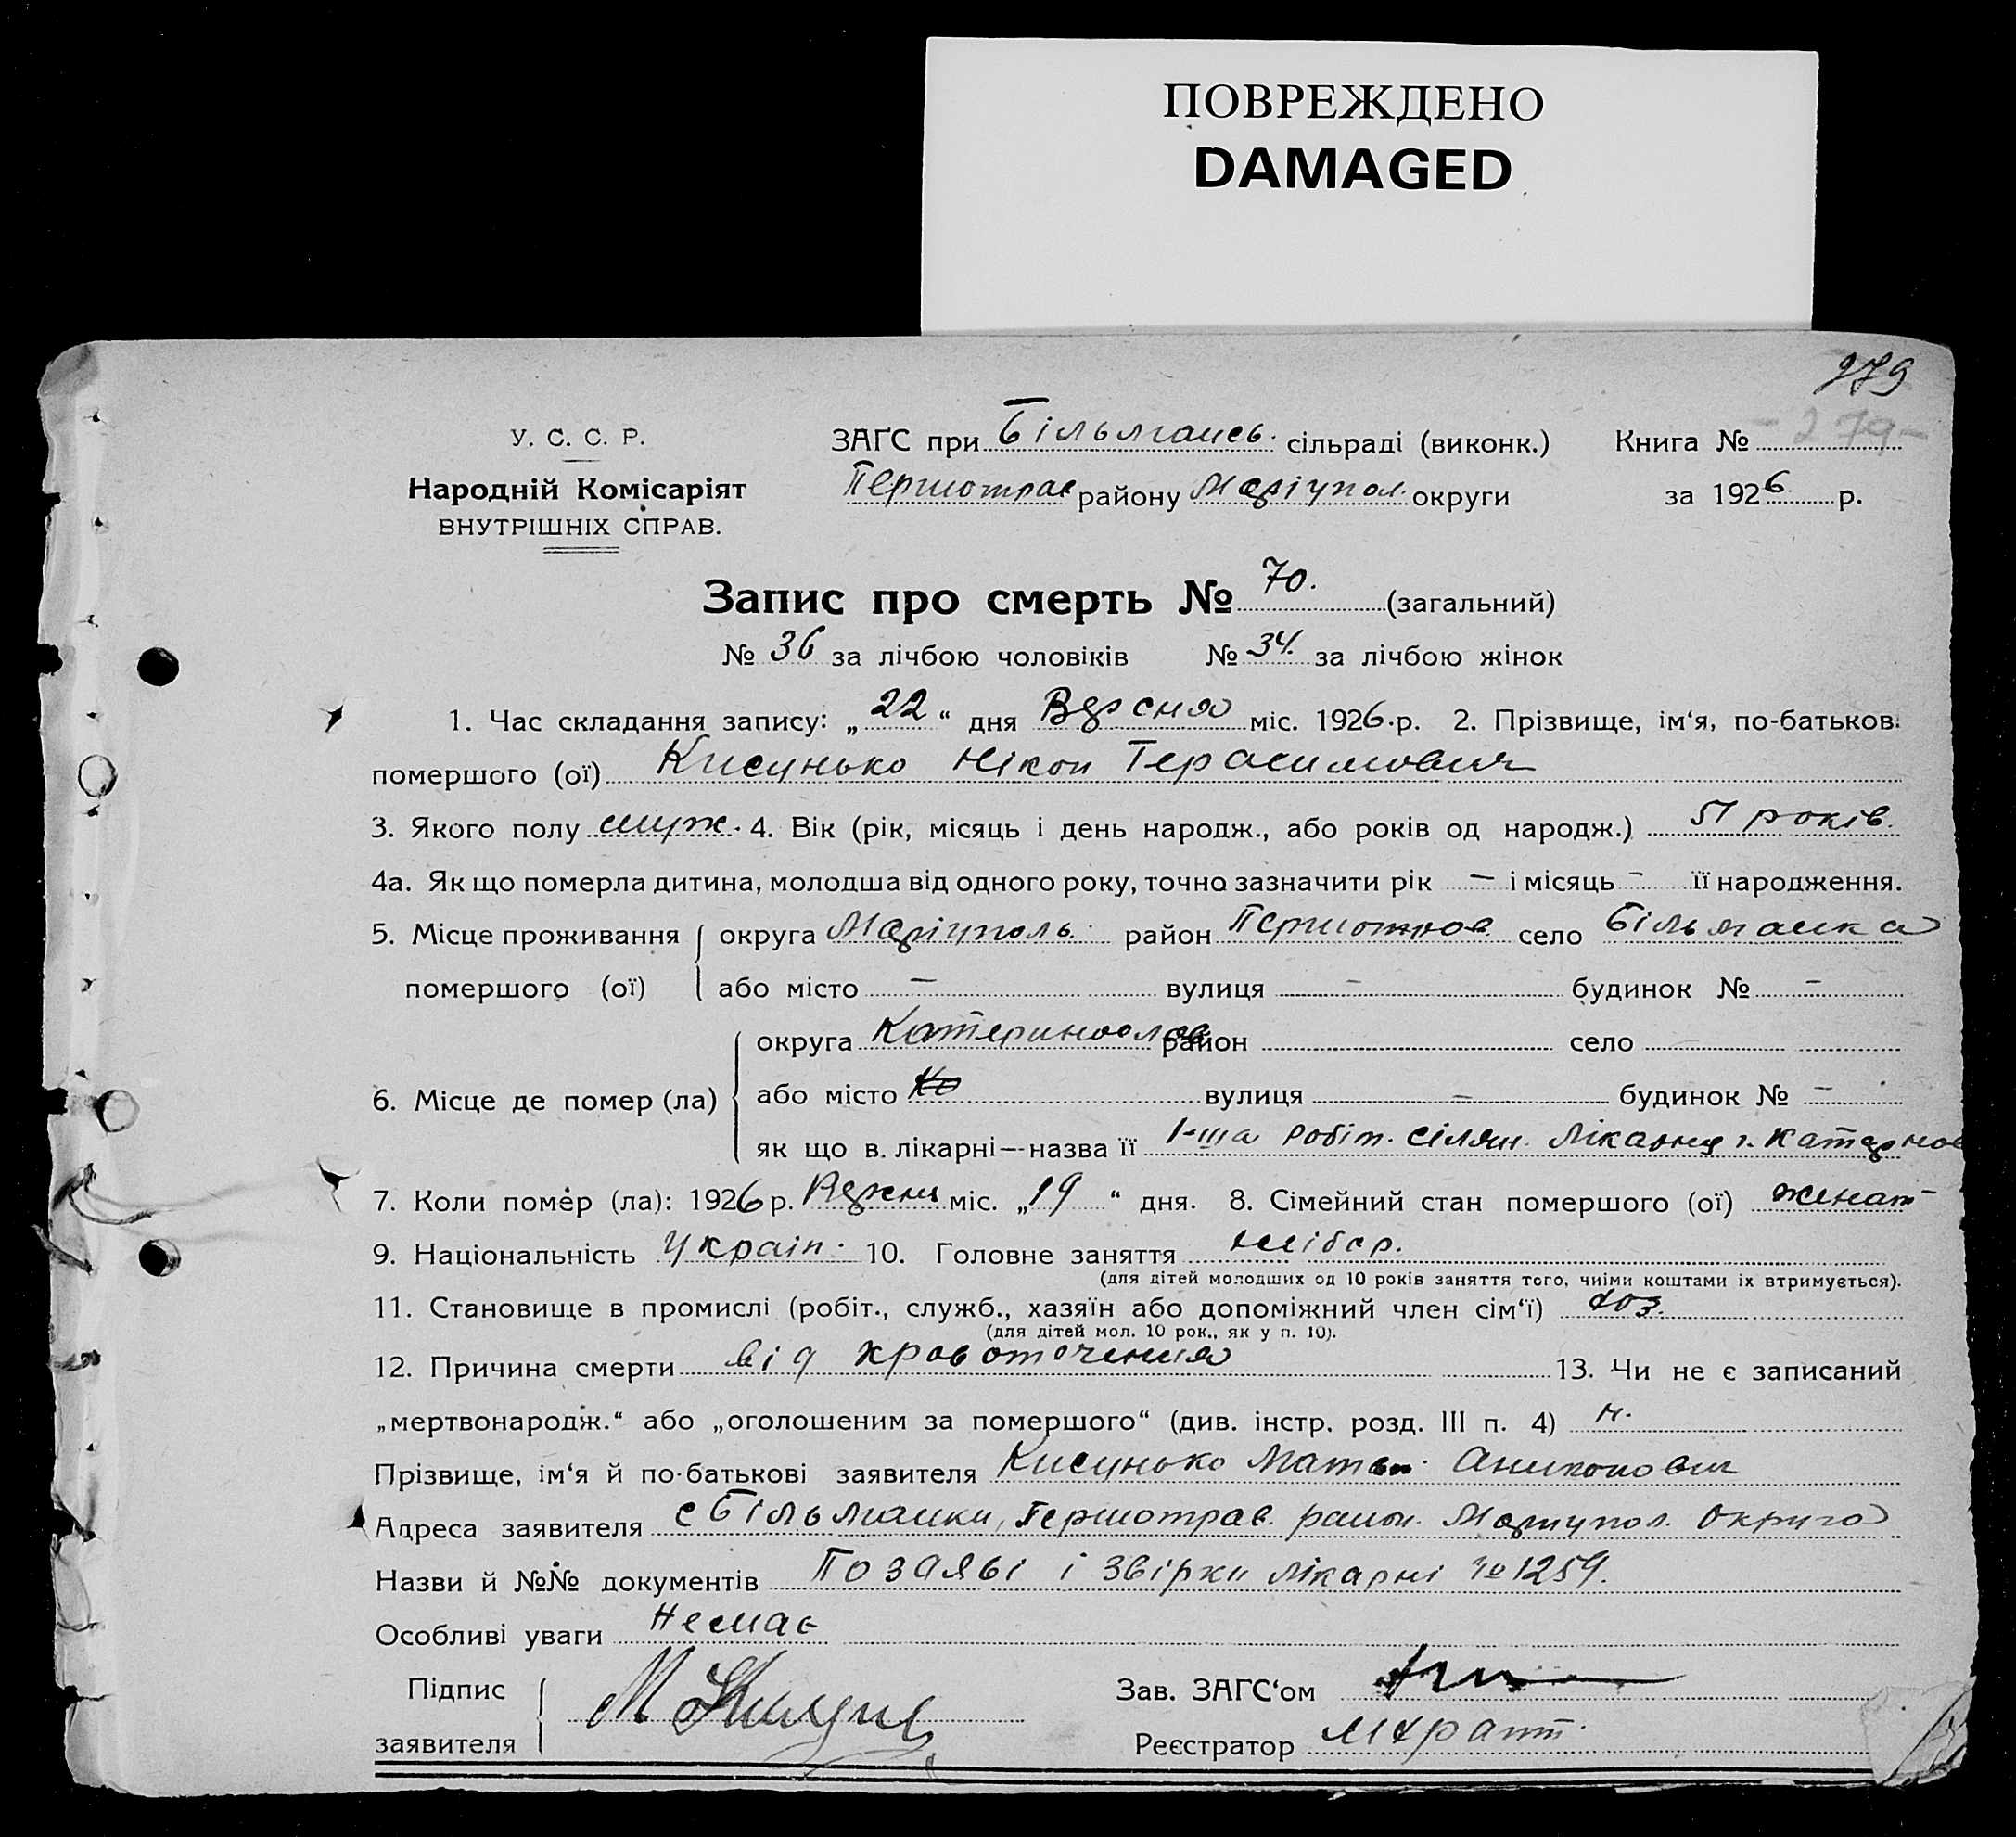 ПОВРЕЖДЕНО
DAMAGED
279
У. С. С. Р.
Народній Комісаріят
ВНУТРІШНІХ СПРАВ.
ЗАҐС при Більмансь. сільраді (виконк.) Книга № - 279 -
Першотрав району Маріупол. округи за 1926 р.
Запис про смерть № 70. (загальний)
№ 36 за лічбою чоловіків № 34. за лічбою жінок
1. Час складання запису: „ 22 “ дня Вересня міс. 1926 р. 2. Прізвище, ім‘я, по-батькові
помершого (ої) Кисунько Нікон Герасимович
3. Якого полу муж. 4. Вік (рік, місяць і день народж., або років од народж.) 51 років.
4а. Як що померла дитина, молодша від одного року, точно зазначити рік — і місяць - її народження.
5. Місце проживання округа Маріуполь. район Першотрав. село Більманка
помершого (ої) або місто — вулиця — будинок № —
округа Катеринослав район село
6. Місце де помер (ла) або місто вулиця — будинок № —
як що в лікарні — назва її 1-ша робіт. сілян. Лікарня г.
7. Коли помер (ла): 1926 р. Вересня міс. „ 19 “ дня. 8. Сімейний стан помершого (ої) женат
9. Національність Украін. 10. Головне заняття хлібор.
(для дітей молодших од 10 років заняття того, чиїми коштами їх втримується).
11. Становище в промислі (робіт., служб., хазяїн або допоміжний член сім‘ї) хоз.
(для дітей мол. 10 рок., як у п. 10).
12. Причина смерти від кровотечения 13. Чи не є записаний
„мертвонародж.“ або „оголошеним за помершого“ (див. інстр. розд. III п. 4) н.
Прізвище, ім‘я й по-батькові заявителя Кисунько Матв. Аниконович
Адреса заявителя с Більманки, Першотрав. район. Мариупол. Округа
Назви й №№ документів По заяві і звірки лікарні № 1259.
Особливі уваги Немає
Підпис
заявителя
Зав. ЗАГС‘ом
Реєстратор